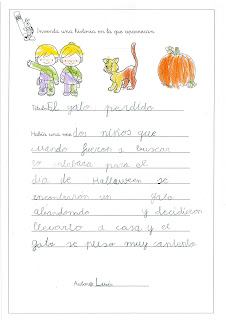 Inventa una historia en la que aparezcan:
Título: El gato perdido
Había una vez dos niños que
cuando fueron a buscar
la calabaza para el
día de Halloween se
encontraron un gato
abandonado y decidieron
llevarlo a casa y el
gato se puso muy contento.
Autor@ Lucía